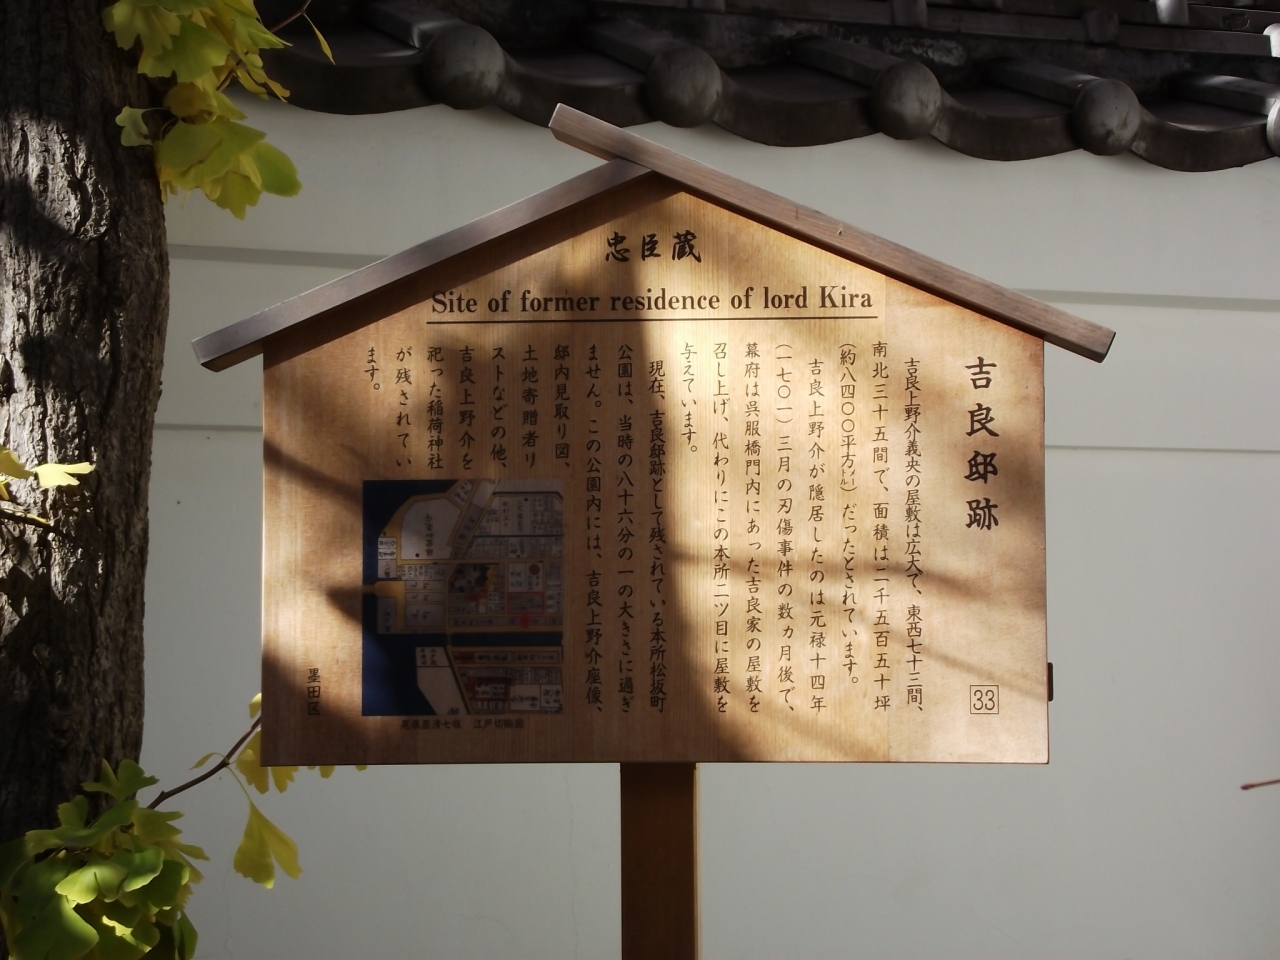 忠臣蔵
Site of former residence of lord Kira
吉良邸跡
吉良上野介義央の屋敷は広大で、東西七十三間、
南北三十五間で、面積は二千五百五十坪
(約八四〇〇平方メートル)だったとされています。
吉良上野介が隠居したのは元禄十四年
(一七〇一)三月の刃傷事件の数カ月後で、
幕府は呉服橋門内にあった吉良家の屋敷を
召し上げ、代わりにこの本所二ツ目に屋敷を
与えています。
現在、吉良邸跡として残されている本所松坂町
公園は、当時の八十六分の一の大きさに過ぎ
ません。この公園内には、吉良上野介座像、
邸内見取り図、
土地寄贈者リ
ストなどの他、
吉良上野介を
祀った稲荷神社
が残されてい
ます。
尾張屋清七板 江戸切絵図
墨田区
33